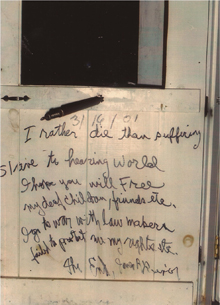 3/16/01
I rather die than suffering
slave to hearing world
I hope you will Free
my deaf children, friends etc.
I go to war with law makers
failed to protect me my rights etc.
The End,